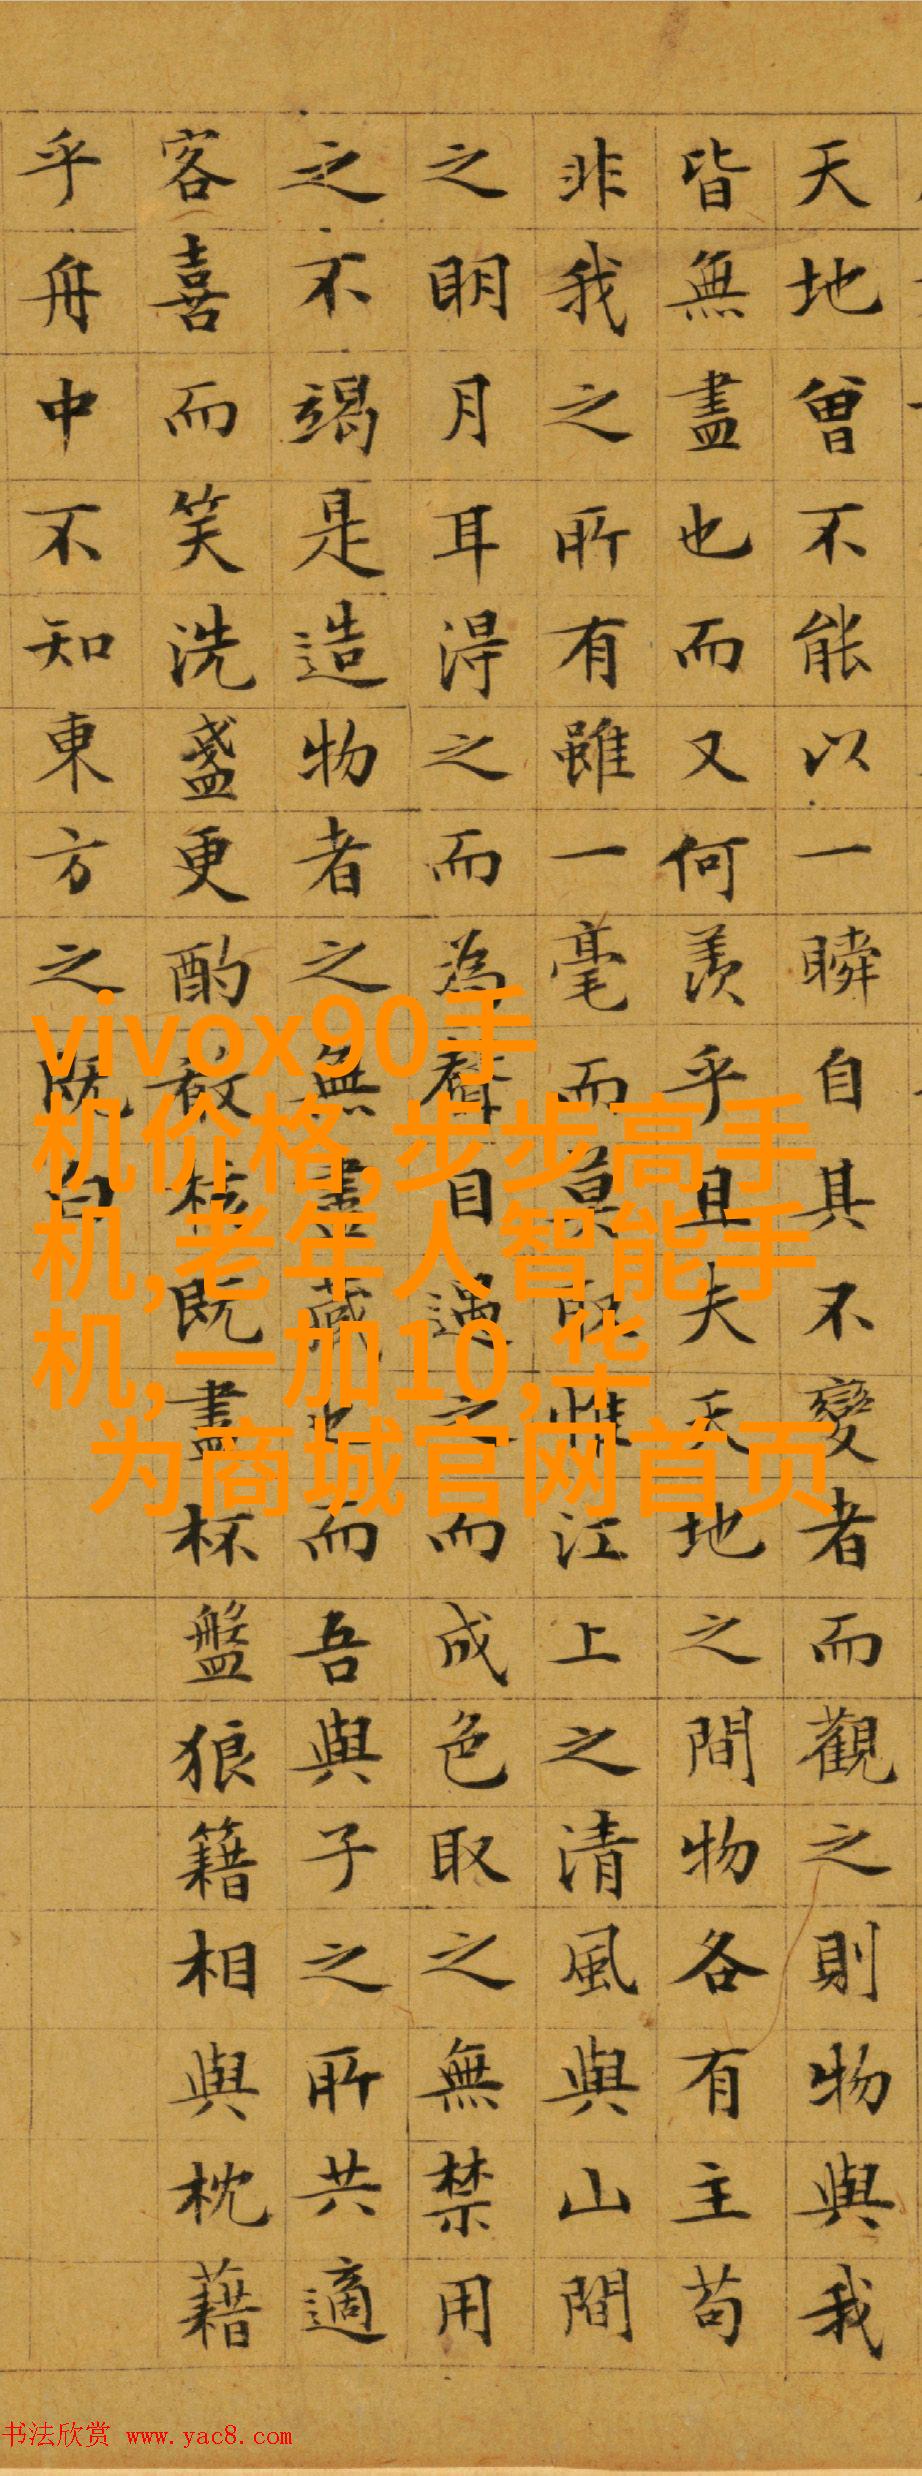 天地曾不能以一瞬自其不變者而觀之則物與我
皆無盡也而又何羨乎且夫天地之間物各有主苟
非我之所有雖一毫而莫取惟江上之清風與山間
之明月耳得之而為聲目遇之而成色取之無禁用
之不竭是造物者之無盡藏也而吾與子之所共適
客喜而笑洗盞更酌殽核既盡杯盤狼籍相與枕藉
乎舟中不知東方之既白
vivox90手
机价格,步步高手
机,老年人智能手
机,一加10,华
为商城官网首页
书法欣赏 www.yac8.com